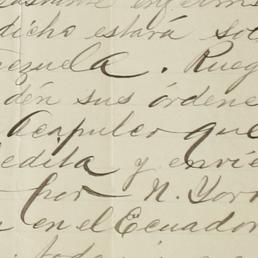 dicho estará so
ezuela. Rueg
dén sus órdene
Acapulco que
edita y envíe
por N. York
en el Ecuador